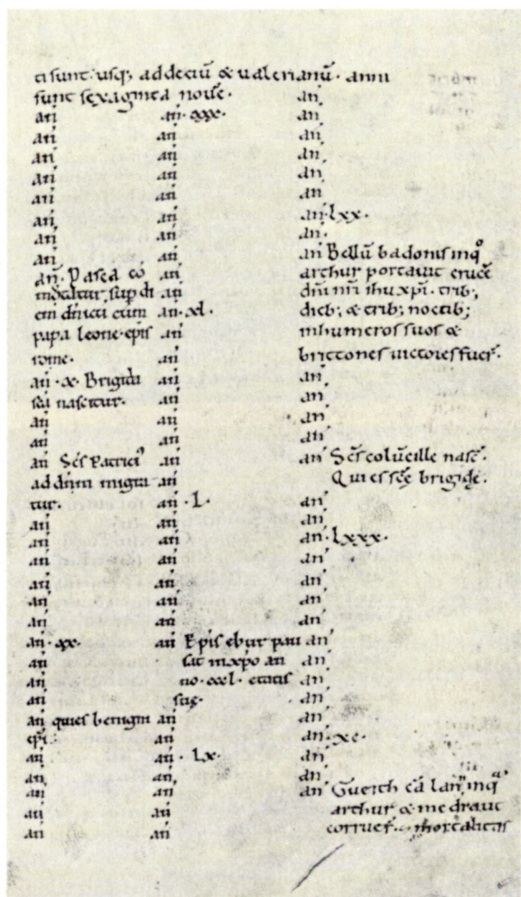 ti sunt. usq; ad deciũ & ualerianũ. anni
sunt sexaginta nouẽ.
añ
añ
añ
añ
añ
añ
añ
añ
añ. Pasca cō
mōtatur sup di
em dñicū cum
papa leone. epis
rome.
añ. x. Brigida
scā nascitur.
añ
añ
añ Scs Patrici⁹
ad dñm migra
tur.
añ
añ
añ
añ
añ
añ
añ. xx.
añ
añ
añ
añ quies benigni
epi.
añ
añ
añ
añ
añ
añ. xxx.
añ
añ
añ
añ
añ
añ
añ
añ
añ
añ. xl.
añ
añ
añ
añ
añ
añ
añ
añ
añ. L.
añ
añ
añ
añ
añ
añ
añ Epis ebur pau
sat in xpo an
no. cccl. etatis
sue.
añ
añ
añ. Lx.
añ
añ
añ
añ
añ
añ
añ
añ
añ
añ
añ. Lxx.
añ.
añ Bellū badonis inq°
arthur portauit crucē
dñi nri ihu xpi. trib;
dieb; & trib; noctib;
inhumeros suos &
brittones uictores fuer̃.
añ
añ
añ
añ
añ Scs colūcille nasc̃.
Quies scē brigide.
añ
añ
añ. Lxxx.
añ
añ
añ
añ
añ
añ
añ
añ
añ
añ. xc.
añ
añ
añ Gueith cā lañ inq̃
arthur & medraut
corruer̃. & mortalitas